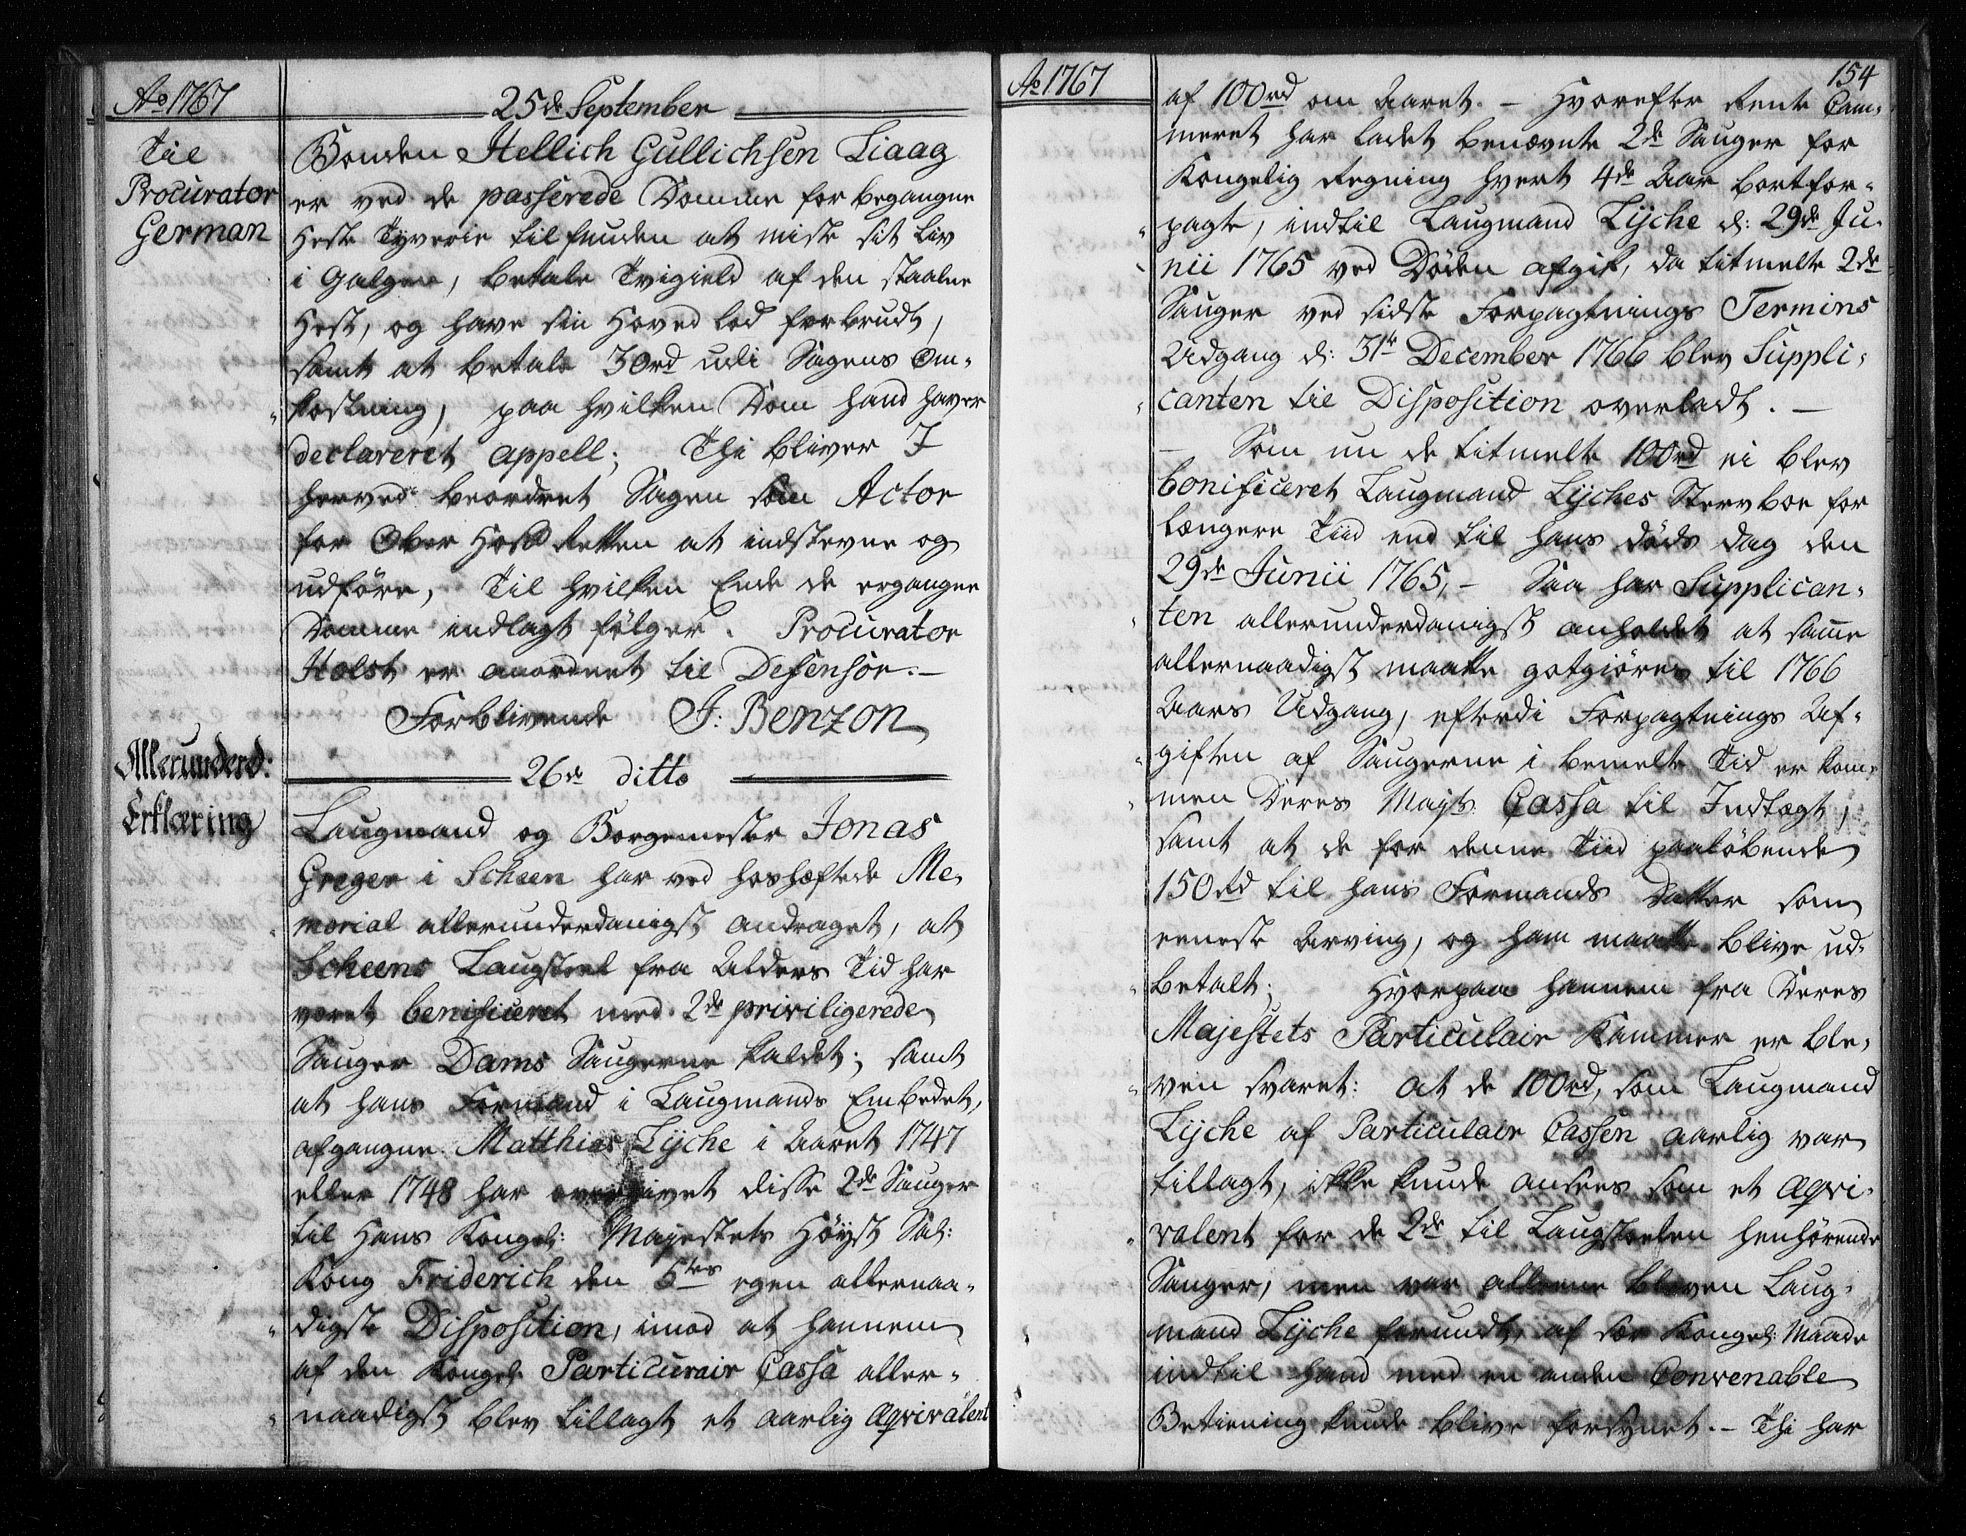 Ao 1767
25de September
Til
Procurator
German
Bonden Hellich Gullichsen Liaag
er ved de passerede Domme for begangne
Heste Tyverie tilfunden at miste sit Liv
i Galgen, betale Tvigield af den staalne
Hest, og have sin Hoved lod forbrudt,
samt at betale 30rd udi Sagens Om-
kostning, paa hvilken Dom hand haver
declareret appell; Thi bliver I
herved beordret Sagen som Actor
for Ober Hof Retten at indstevne og
udføre, Til hvilken Ende de ergangne
Domme indlagt følger. Procurator
Holst er anordnet til Defensor.-
Forblivende J: Benzon
26de ditto
Allerunderd:
Erklæring
Laugmand og Borgemester Jonas
Greger i Scheen har ved hoshæftede Me-
morial allerunderdanigst andraget, at
Scheens Laugstoel fra Alders Tid har
været benificeret med 2de priviligerede
Sauger Dams Saugerne kaldet; samt
at hans Formand i Laugmands Embedet,
afgangne Matthias Lyche i Aaret 1747
eller 1748 har overgivet disse 2de Sauger
til Hans Kongel: Majestets Høyst Sal:
Kong Friderich den 5tes egen allernaa-
digste Disposition, imod at hannem
af den Kongel: Particulair Cassa aller-
naadigst blev tillagt et aarlig Æqvivalent
Ao 1767
154
af 100rd om Aaret. - Hvorefter Rente Cam-
meret har ladet benævnte 2de Sauger for
Kongelig Regning hvert 4de Aar bortfor-
pagte, indtil Laugmand Lyche d: 29de Ju-
nii 1765 ved Døden afgik, da titmelte 2de
Sauger ved sidste Forpagtnings Termins
Udgang d: 31te December 1766 blev Suppli-
canten til Disposition overladt. -
- Som nu de titmelte 100rd ei blev
bonificeret Laugmand Lyches Stervboe for
længere Tiid end til hans døds dag den
29de Junii 1765, - Saa har Supplican-
ten allerunderdanigst anholdet at samme
allernaadigst maatte gotgiøres til 1766
Aars Udgang, efterdi Forpagtnings Af-
giften af Saugerne i bemelte Tid er kom-
men Deres Mayts Cassa til Indtægt,
samt at de for denne Tiid paaløbende
150rd til hans Formands Datter som
eeneste Arving, og ham maatte blive ud-
betalt; Hvorpaa hannem fra Deres
Majestets Particulair Kammer er ble-
ven svaret: At de 100rd, som Laugmand
Lyche af Particulair Cassen aarlig var
tillagt, ikke kunde ansees som et Æqvi-
valent for de 2de til Laugstoelen henhørende
Sauger, men var alleene bleven Laug-
mand Lyche forundt af sær Kongel: Naade
indtil hand med en anden Convenable
Betiening kunde blive forsynet. - Thi har